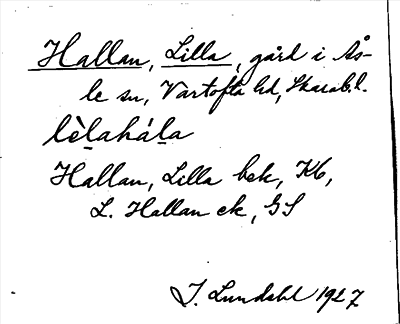 Hallan, Lilla, gård i Ås-
le sn, Vartofta hd, Skarab.l.
lèlahála
Hallan, Lilla bek, Kb,
L. Hallan ek, GS
I. Lundahl 1927